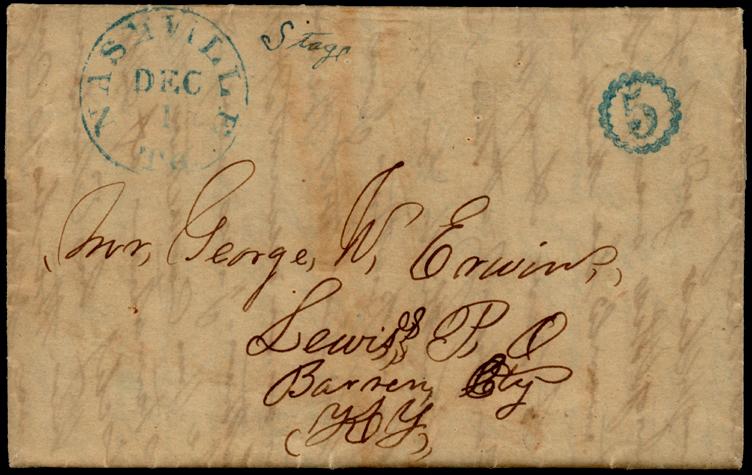 NASHVILLE
DEC
1
Te
Stage
5
Mr, George, W, Erwin,
Lewis's P, O
Barren, Cty
(KY,)